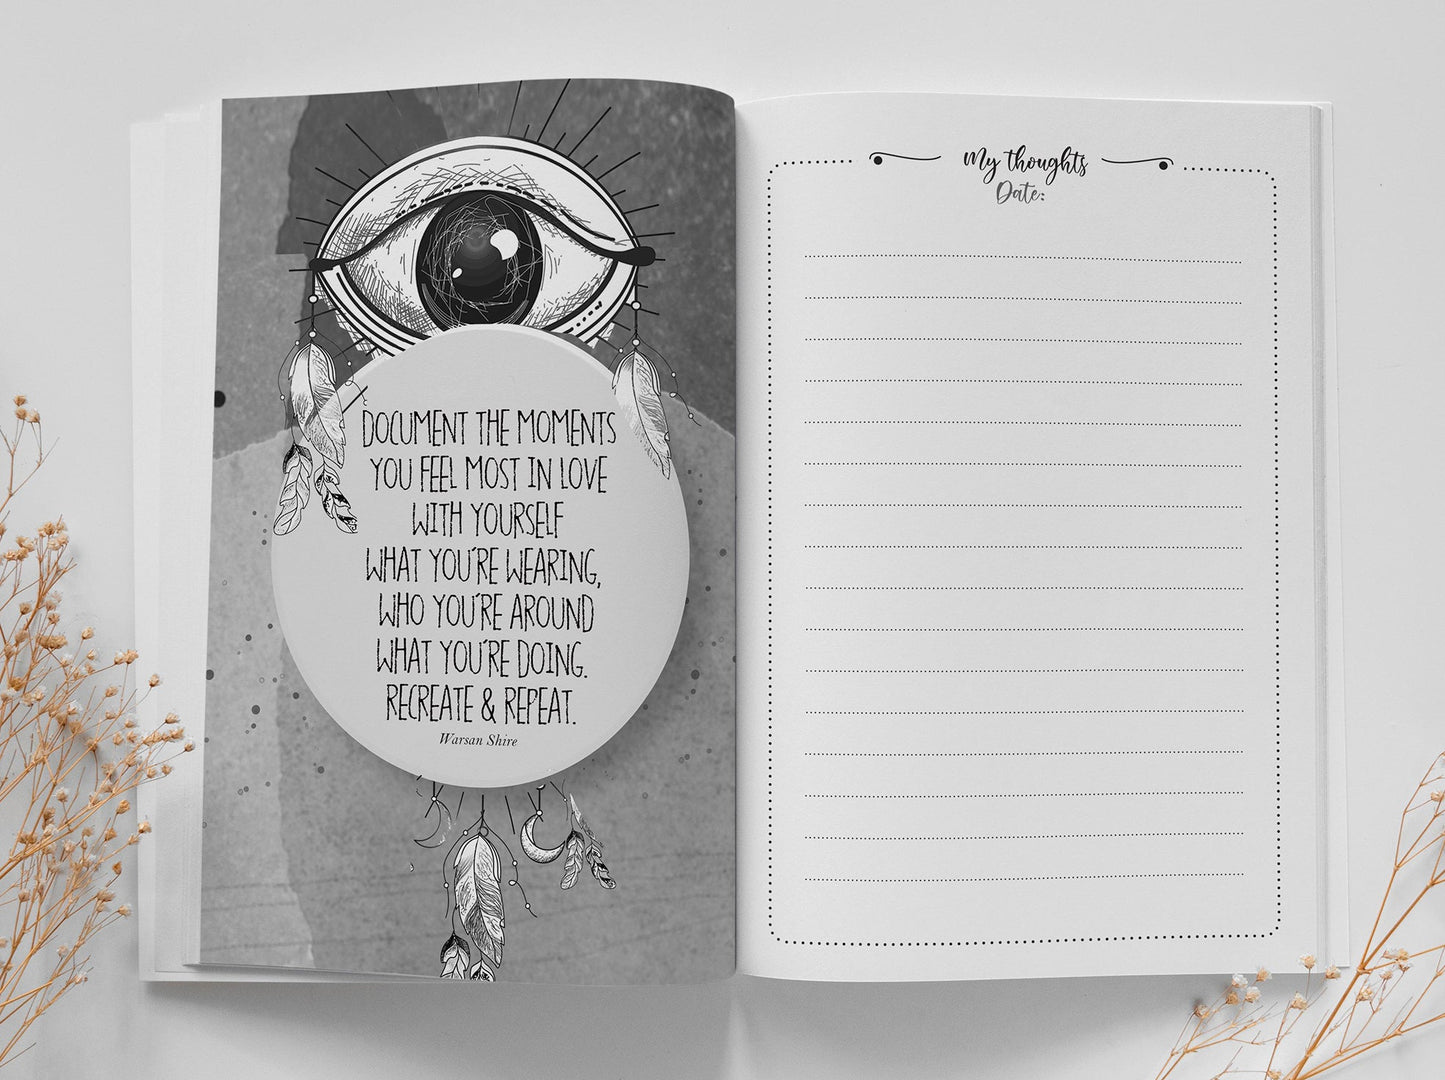 DOCUMENT THE MOMENTS
YOU FEEL MOST IN LOVE
WITH YOURSELF
WHAT YOU'RE WEARING,
WHO YOU'RE AROUND
WHAT YOU'RE DOING.
RECREATE & REPEAT.
Warsan Shire
My thoughts
Date: